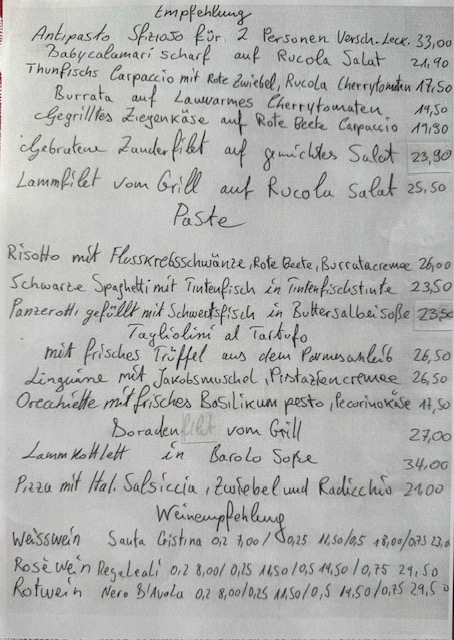 Empfehlung
Antipasto Sfizioso für 2 Personen Versch. Leck. 33,00
Babycalamari scharf auf Rucola Salat 21,90
Thunfischs Carpaccio mit Rote Zwiebel, Rucola Cherrytomaten 17,50
Burrata auf Lauwarmes Cherrytomaten 19,50
Gegrilltes Ziegenkäse auf Rote Beete Carpaccio 19,90
Gebratene Zanderfilet auf gemichtes Salat 23,90
Lammfilet vom Grill auf Rucola Salat 25,50
Paste
Risotto mit Flusskrebsschwänze, Rote Beete, Burratacreme 26,00
Schwarze Spaghetti mit Tintenfisch in Tintenfischstinte 23,50
Panzerotti gefüllt mit Schwertsfisch in Buttersalbeisoße 23,50
Tagliolini al Tartufo
mit frisches Trüffel aus dem Parmesanleib 26,50
Linguine mit Jakobsmuschel, Pistaziencreme 26,50
Orecchiette mit frisches Basilikum pesto, Pecorinokäse 17,50
Doradenfilet vom Grill 27,00
Lammkottlett in Barolo Soße 34,00
Pizza mit Ital. Salsiccia, Zwiebel und Radicchio 21,00
Weinempfehlung
Weisswein Santa Cristina 0,2 7,00/ 0,25 11,50/0,5 18,00/0,75 23,0
Rosèwein Regaleali 0,2 8,00/ 0,25 11,50/0,5 19,50/ 0,75 29,50
Rotwein Nero D'Avola 0,2 8,00/0,25 11,50/0,5 19,50/0,75 29,50